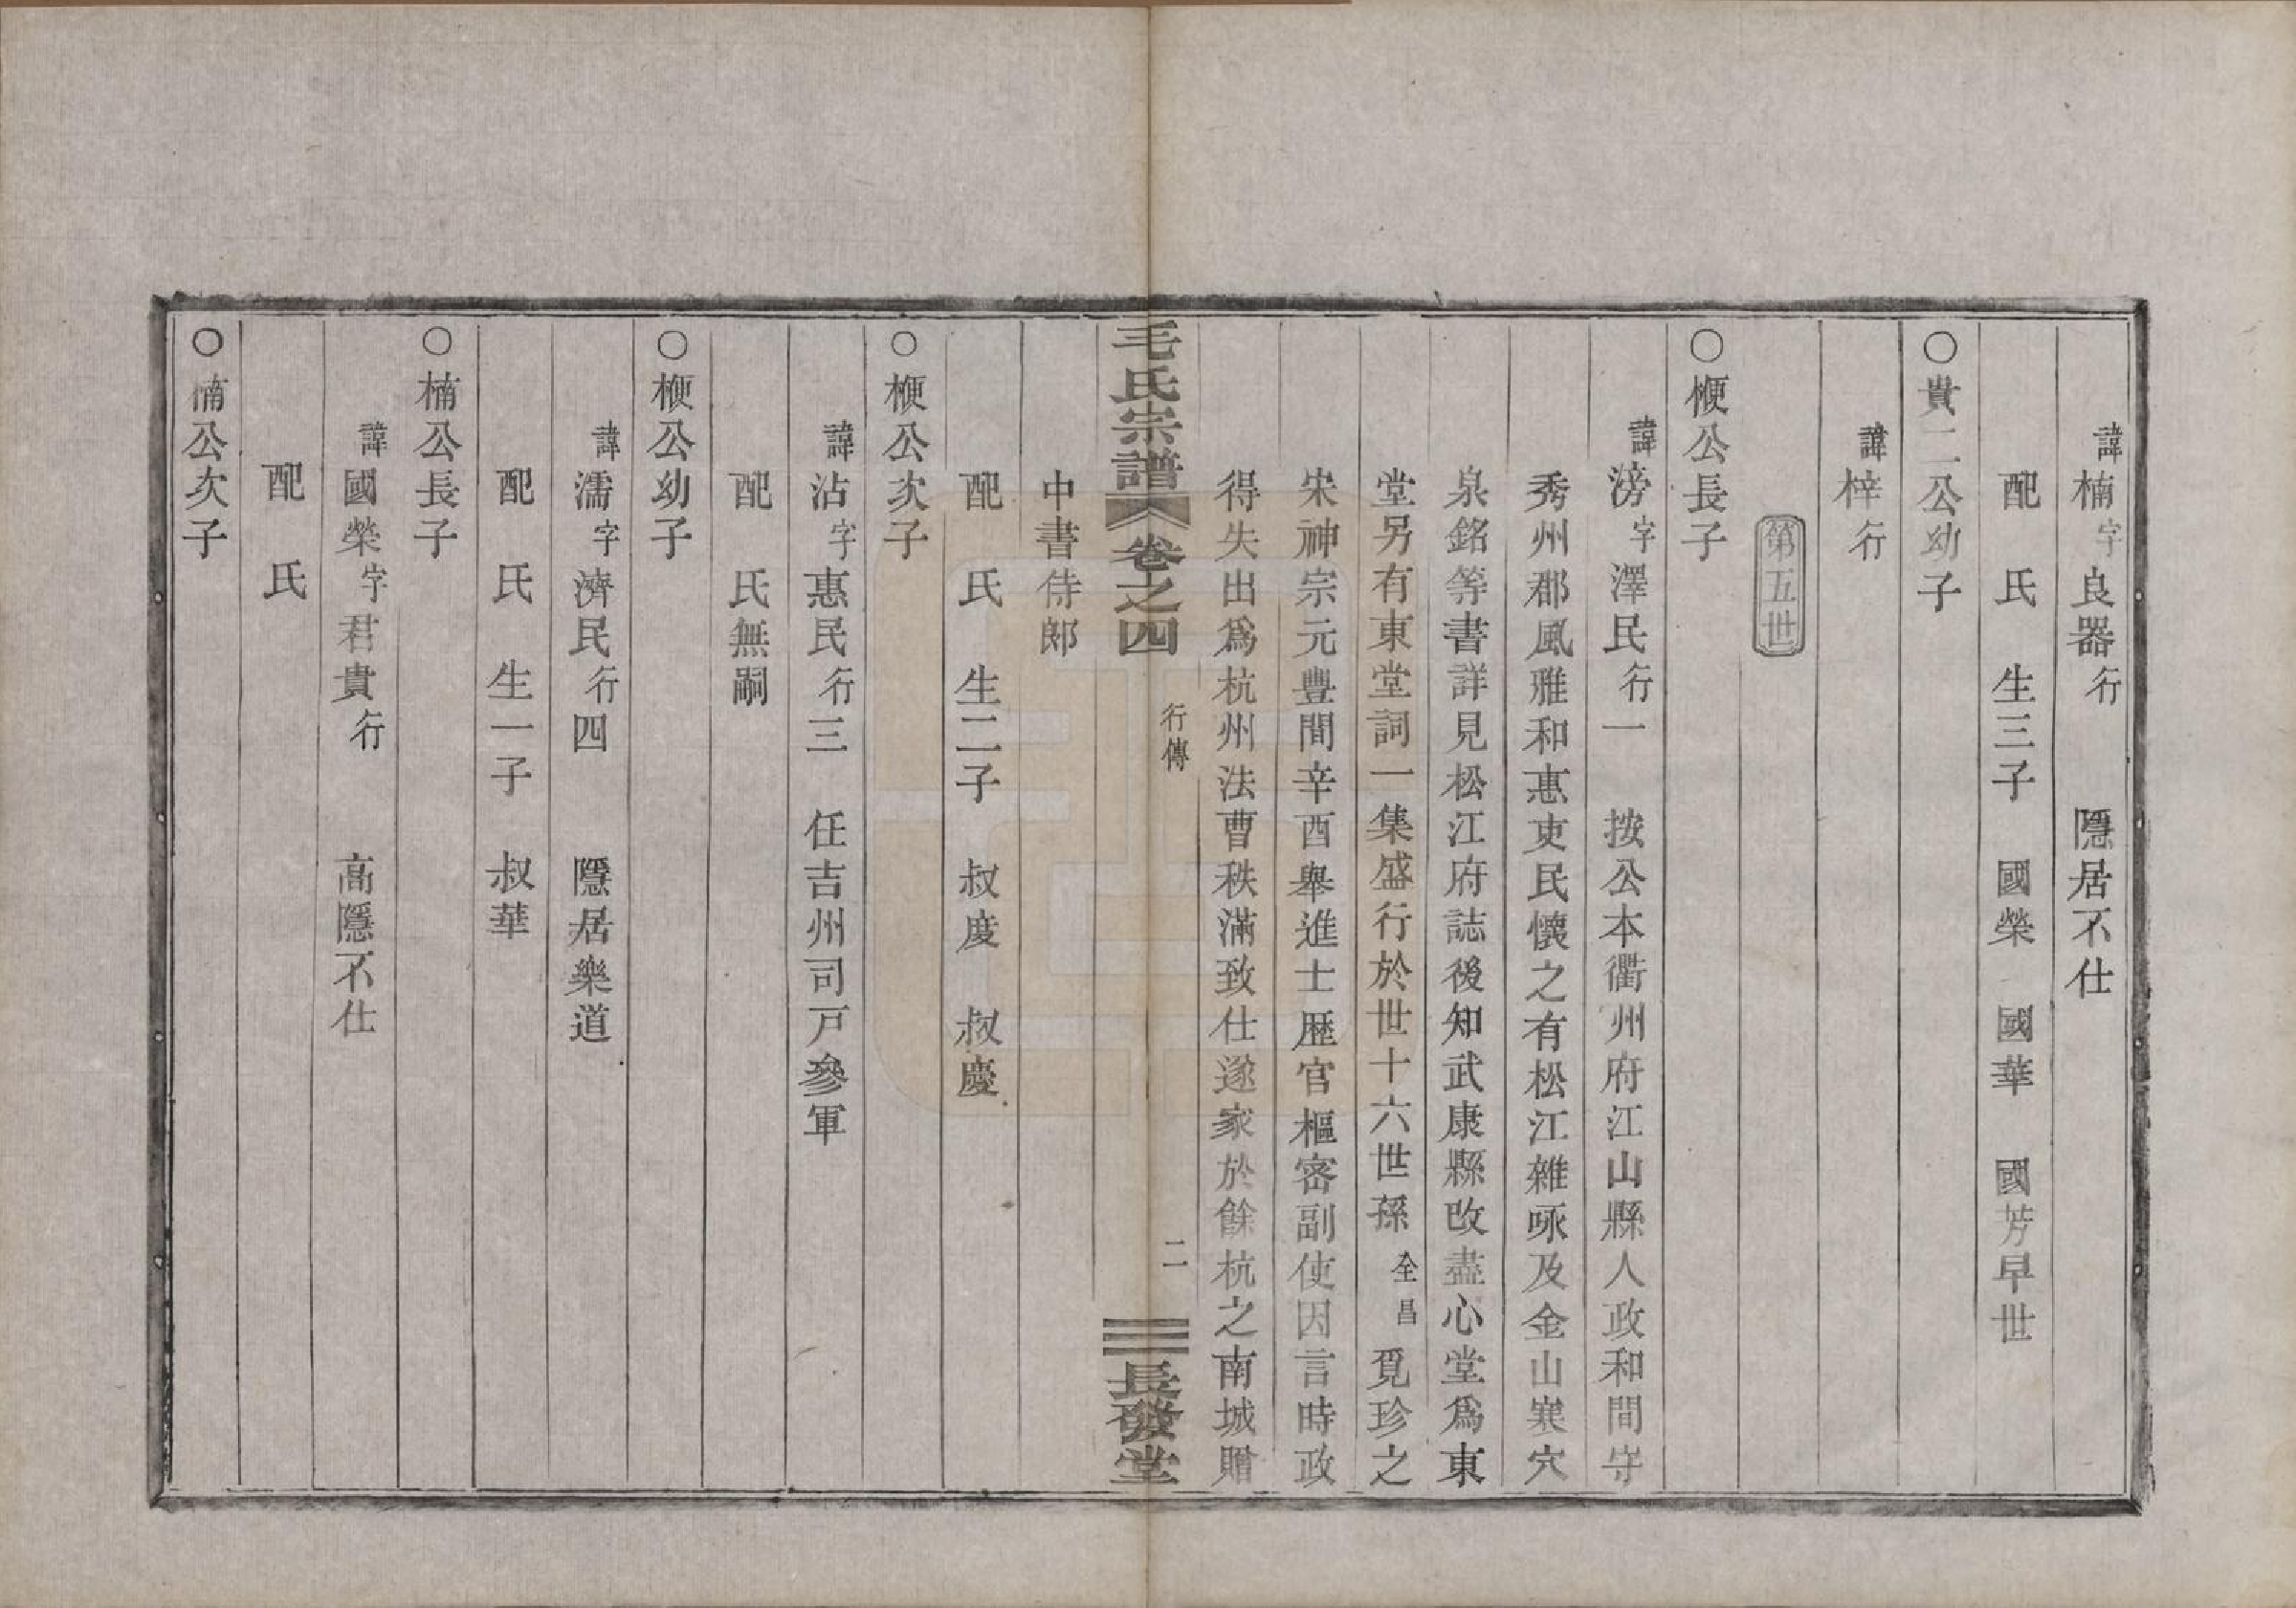 諱楠字良器行　隱居不仕
配　氏　生三子　國榮　國華　國芳早世
○貴二公幼子
諱梓行
第五世
○楩公長子
諱滂字澤民行一　按公本衢州府江山縣人政和間守
秀州郡風雅和惠吏民懷之有松江雜咏及金山寒穴
泉銘等書詳見松江府誌後知武康縣改盡心堂爲東
堂另有東堂詞一集盛行於世十六世孫全昌覓珍之
宋神宗元豊間辛酉舉進士歷官樞密副使因言時政
得失出爲杭州法曹秩滿致仕遂家於餘杭之南城贈
毛氏宗譜　卷之四　行傳　二　長發堂
中書侍郎
配　氏　生二子　叔度　叔慶
○楩公次子
諱沾字惠民行三　任吉州司戸參軍
配　氏無嗣
○楩公幼子
諱濡字濟民行四　隱居樂道
配　氏　生一子　叔華
○楠公長子
諱國榮字君貴行　高隱不仕
配　氏
○楠公次子